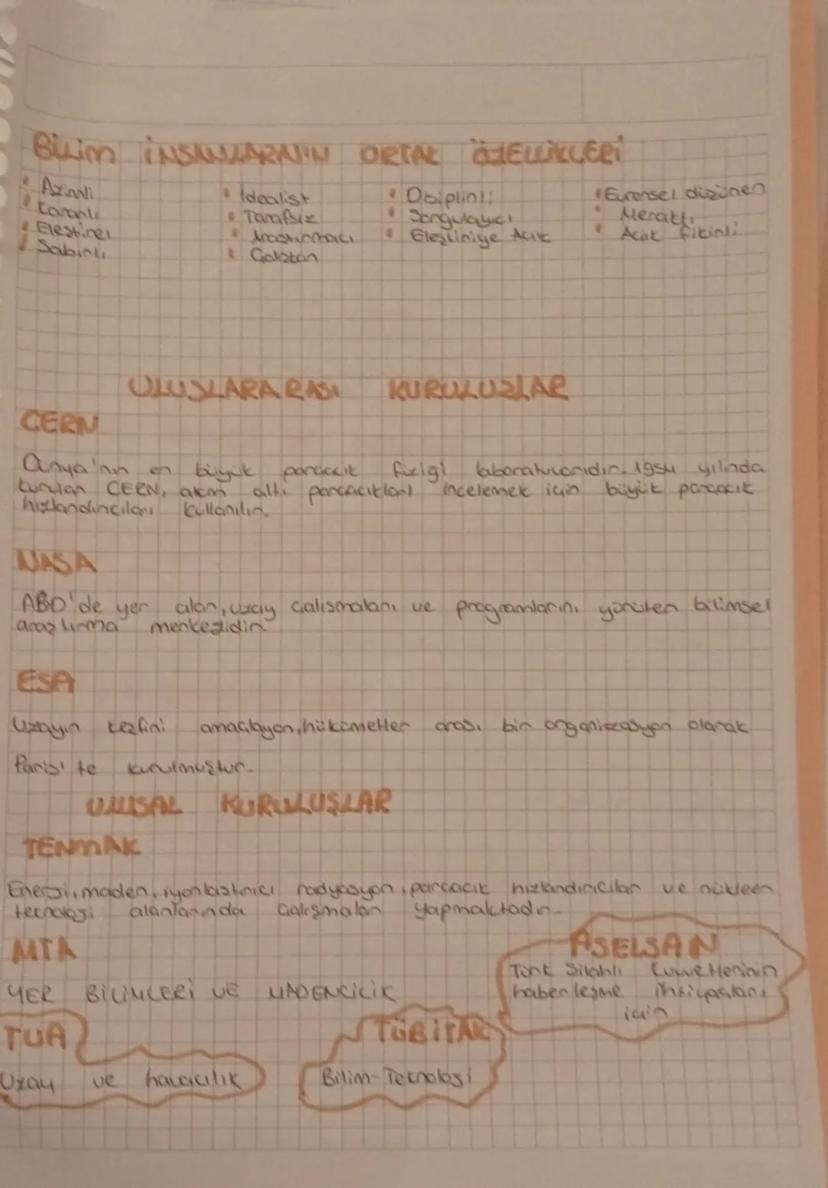 BİLİM İNSANLARININ ORTAK ÖZELLİKLERİ
• Azimli
• Kararlı
• Eleştirel
• Sabırlı
• İdealist
• Tarafsız
• Araştırmacı
• Çalışkan
• Disiplinli
• Sorgulayıcı
• Eleştiriye Açık
• Evrensel düşünen
• Meraklı
• Açık fikirli
ULUSLARARASI KURULUŞLAR
CERN
Dünya'nın en büyük parçacık fiziği laboratuvarıdır. 1954 yılında
kurulan CERN, atom altı parçacıkları incelemek için büyük parçacık
hızlandırıcıları kullanılır.
NASA
ABD'de yer alan, uzay çalışmaları ve programlarını yürüten bilimsel
araştırma merkezidir
ESA
Uzayın keşfini amaçlayan, hükümetler arası bir organizasyon olarak
Paris'te kurulmuştur.
ULUSAL KURULUŞLAR
TENMAK
Enerji, maden, iyonlaştırıcı radyasyon, parçacık hızlandırıcıları ve nükleer
teknoloji alanlarında çalışmaları yapmaktadır.
MTA
YER BİLİMLERİ VE MADENCİLİK
ASELSAN
Türk Silahlı Kuvvetlerinin
haberleşme ihtiyaçları
için
TUA
Uzay ve havacılık
TÜBİTAK
Bilim-Teknoloji